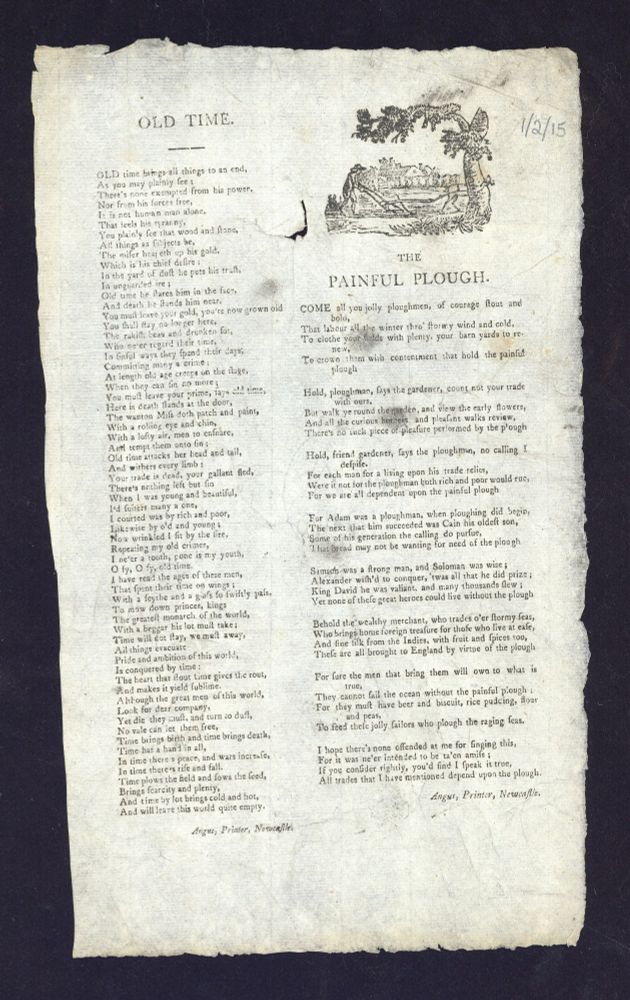 OLD TIME.
OLD time brings all things to an end,
As you may plainly ſee;
There's none exempted from his power,
Nor from his forces free,
It is not human man alone,
That feels his tyranny,
You plainly ſee that wood and ſtone,
All things as ſubjects be,
The miſer heapeth up his gold,
Which is his chief deſire;
In the yard of duſt he puts his truſt,
In unguarded ire;
Old time he ſtares him in the face,
And death he ſtands him near,
You muſt leave your gold, you're now grown old
You ſhall ſtay no longer here,
The rakiſh beau and drunken ſot,
Who ne'er regard their time,
In ſinful ways they ſpend their days,
Committing many a crime;
At length old age creeps on the ſtage,
When they can ſin no more;
You muſt leave your prime, ſays old time,
Here is death ſtands at the door,
The wanton Miſs doth patch and paint,
With a rolling eye and chin,
With a lofty air, men to enſnare,
And tempt them unto ſin;
Old time attacks her head and tail,
And withers every limb;
Your trade is dead, your gallant fled,
There's nothing left but ſin
When I was young and beautiful,
I'd ſuiters many a one,
I courted was by rich and poor,
Likewiſe by o'd and young;
Now wrinkled I ſit by the fire,
Repeating my old crimes,
I ne'er a tooth, gone is my youth,
O fy, O fy, old time.
I have read the ages of theſe men,
That ſpent their time on wings;
With a ſcythe and a glaſs ſo ſwiftly paſs,
To mow down princes, kings
The greateſt monarch of the world,
With a beggar his lot muſt take;
Time will not ſtay, we muſt away,
All things evacuate
Pride and ambition of this world,
Is conquered by time:
The heart that ſtout time gives the rout,
And makes it yield ſublime.
Although the great men of this world,
Look for dear company,
Yet die they muſt, and turn to duſt,
No vale can ſet them free,
Time brings birth and time brings death,
Time has a hand in all,
In time there's peace, and wars increaſe,
In time there's riſe and fall.
Time plows the field and ſows the ſeed,
Brings ſcarcity and plenty,
And time by lot brings cold and hot,
And will leave this world quite empty.
Angus, Printer, Newcaſtle.
1/2/15
THE
PAINFUL PLOUGH.
COME all you jolly ploughmen, of courage ſtout and
bold,
That labour all the winter thro' ſtormy wind and cold,
To clothe your fields with plenty, your barn yards to re-
new,
To crown them with contentment that hold the painful
plough
Hold, ploughman, ſays the gardener, count not your trade
with ours,
But walk ye round the garden, and view the early flowers,
And all the curious borders and pleaſant walks review,
There's no ſuck piece of pleaſure performed by the p'ough
Hold, friend gardener, ſays the ploughman, no calling I
deſpiſe,
For each man for a living upon his trade relies,
Were it not for the ploughman both rich and poor would rue,
For we are all dependent upon the painful plough
For Adam was a ploughman, when ploughing did begin,
The next that him ſucceeded was Cain his oldeſt ſon,
Some of his generation the calling do purſue,
That bread may not be wanting for need of the plough
Samſon was a ſtrong man, and Soloman was wiſe;
Alexander wiſh'd to conquer, 'twas all that he did prize;
King David he was valiant, and many thouſands ſlew;
Yet none of theſe great heroes could live without the plough
Behold the wealthy merchant, who trades o'er ſtormy ſeas,
Who brings home foreign treaſure for thoſe who live at eaſe,
And fine ſilk from the Indies, with fruit and ſpices too,
Theſe are all brought to England by virtue of the plough
For ſure the men that bring them will own to what is
true,
They cannot ſail the ocean without the painful plough;
For they muſt have beer and biſcuit, rice pudding, flour
and peas,
To feed theſe jolly ſailors who plough the raging ſeas.
I hope there's none offended at me for ſinging this,
For it was ne'er intended to be ta'en amiſs;
If you conſider rightly, you'd find I ſpeak it true,
All trades that I have mentioned depend upon the plough.
Angus, Printer, Newcaſtle.